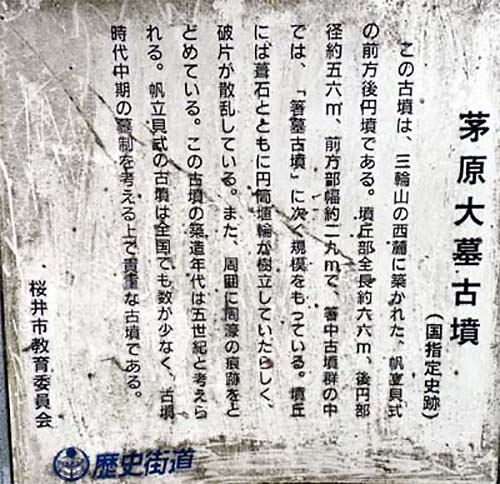 茅原大墓古墳
(国指定史跡)
この古墳は、三輪山の西麓に築かれた、帆立貝式
の前方後円墳である。墳丘部全長約六六m、後円部
径約五六m、前方部幅約二九mで、箸中古墳群の中
では、「箸墓古墳」に次ぐ規模をもっている。墳丘
には葺石とともに円筒埴輪が樹立していたらしく、
破片が散乱している。また、周囲に周濠の痕跡をと
どめている。この古墳の築造年代は五世紀と考えら
れる。帆立貝式の古墳は全国でも数が少なく、古墳
時代中期の墓制を考える上で貴重な古墳である。
桜井市教育委員会
歴史街道